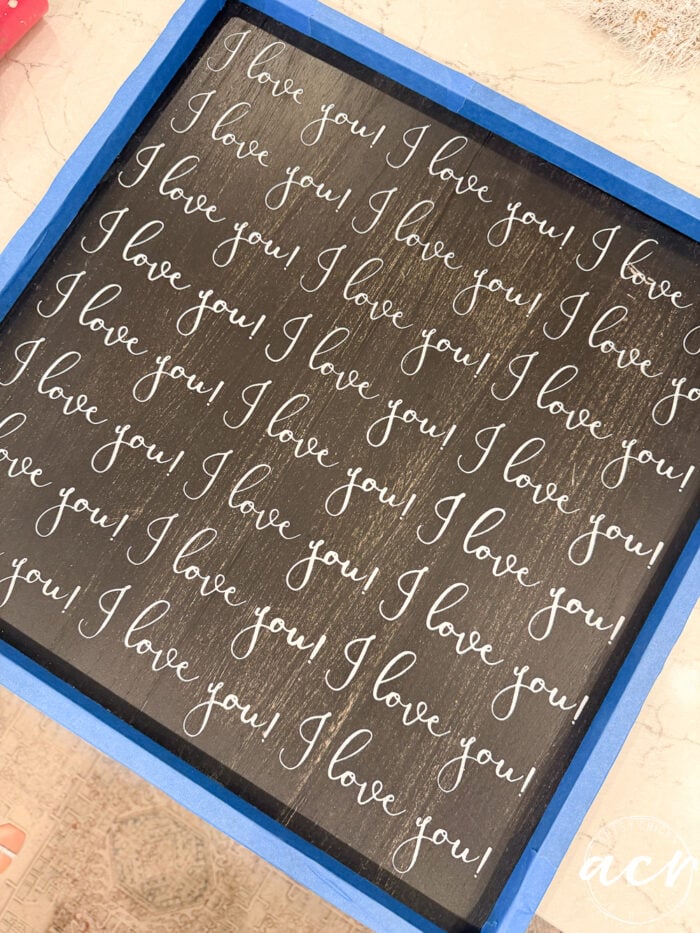 I love you! I love you! I love
I love you! I love you! I love yo
I love you! I love you! I love you!
I love you! I love you! I love you!
I love you! I love you! I love you!
I love you! I love you! I love you!
ove you! I love you! I love you!
you! I love you! I love you!
acr